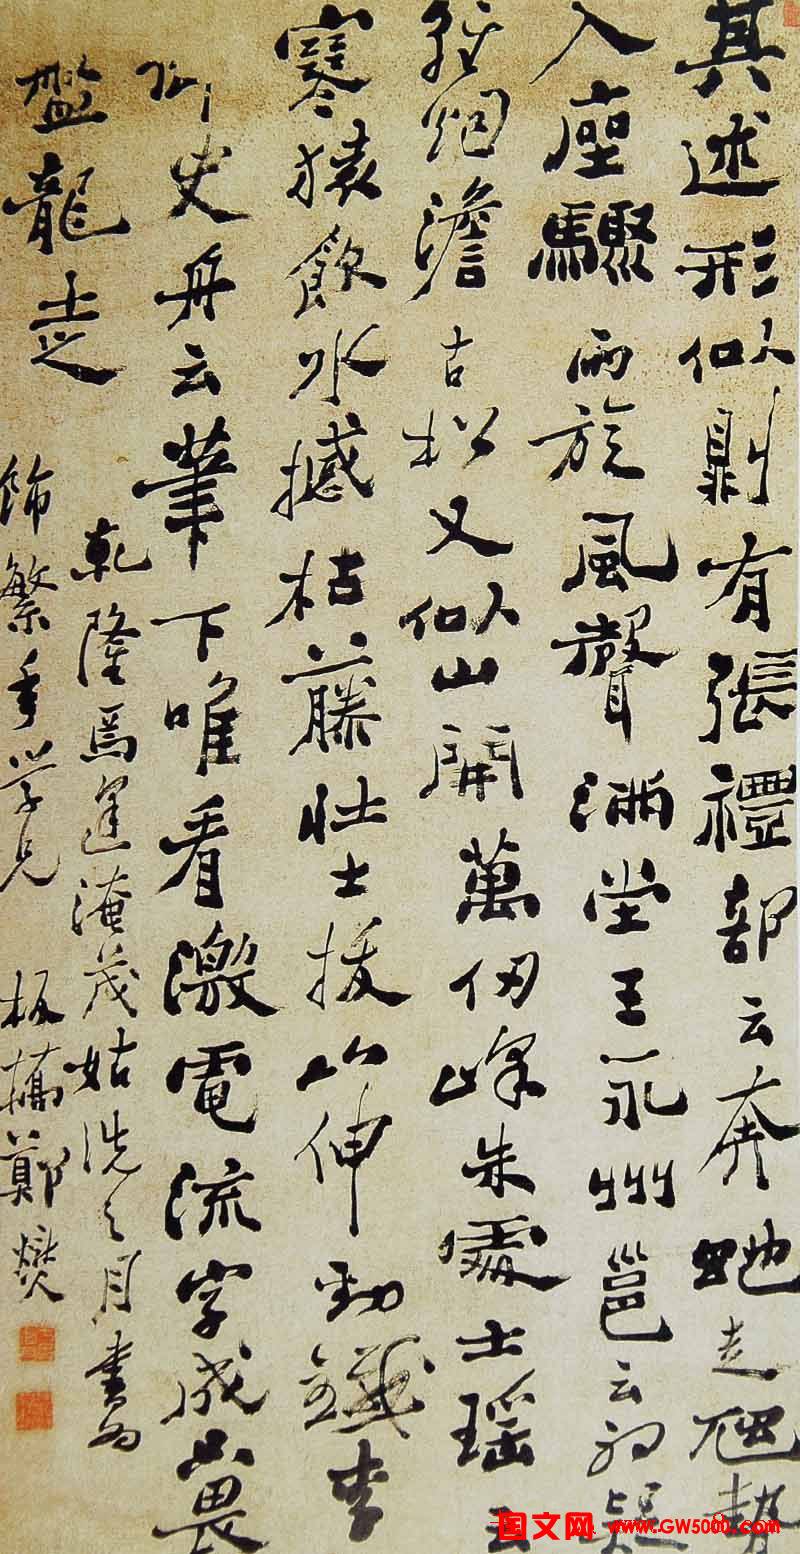 其述形似則有張禮部云奔蛇走虺勢
入座驟雨旋風聲滿堂王永州邕云初疑
輕烟澹古松又似山開萬仞峰朱處士瑶云
寒猿飲水撼枯藤壯士拔山伸動鐵李
御史舟云筆下唯看激電流字成只畏
盤龍走
乾隆焉逢淹茂姑洗之月書為
年學兄 板橋鄭燮
国文网 www.GW5000.com